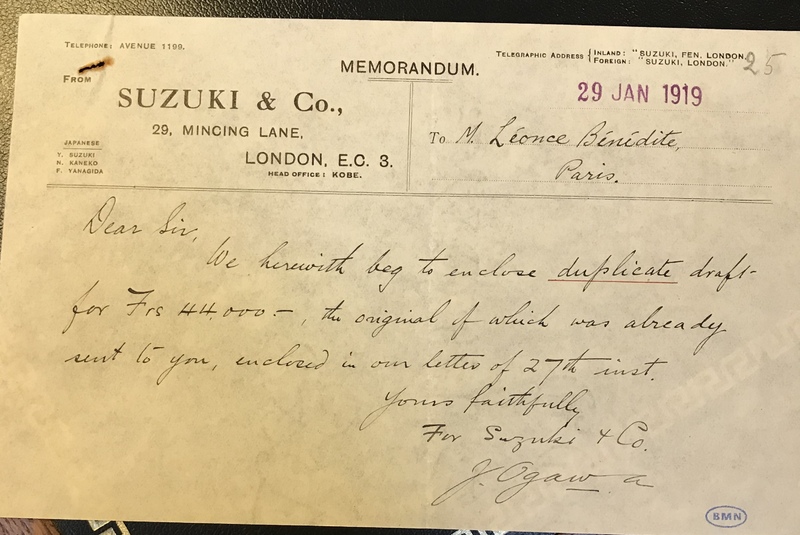 TELEPHONE: AVENUE 1199.
TELEGRAPHIC ADDRESS { INLAND: "SUZUKI, FEN, LONDON."
FOREIGN: "SUZUKI, LONDON."
25
MEMORANDUM.
FROM
SUZUKI & Co.,
29, MINCING LANE,
LONDON, E.C. 3.
HEAD OFFICE: KOBE.
JAPANESE
Y. SUZUKI
N. KANEKO
F. YANAGIDA
29 JAN 1919
To M. Léonce Bénédite,
Paris.
Dear Sir,
We herewith beg to enclose duplicate draft
for Frs 44.000.-, the original of which was already
sent to you, enclosed in our letter of 27th inst.
Yours faithfully
For Suzuki & Co.
J. Ogawa
BMN